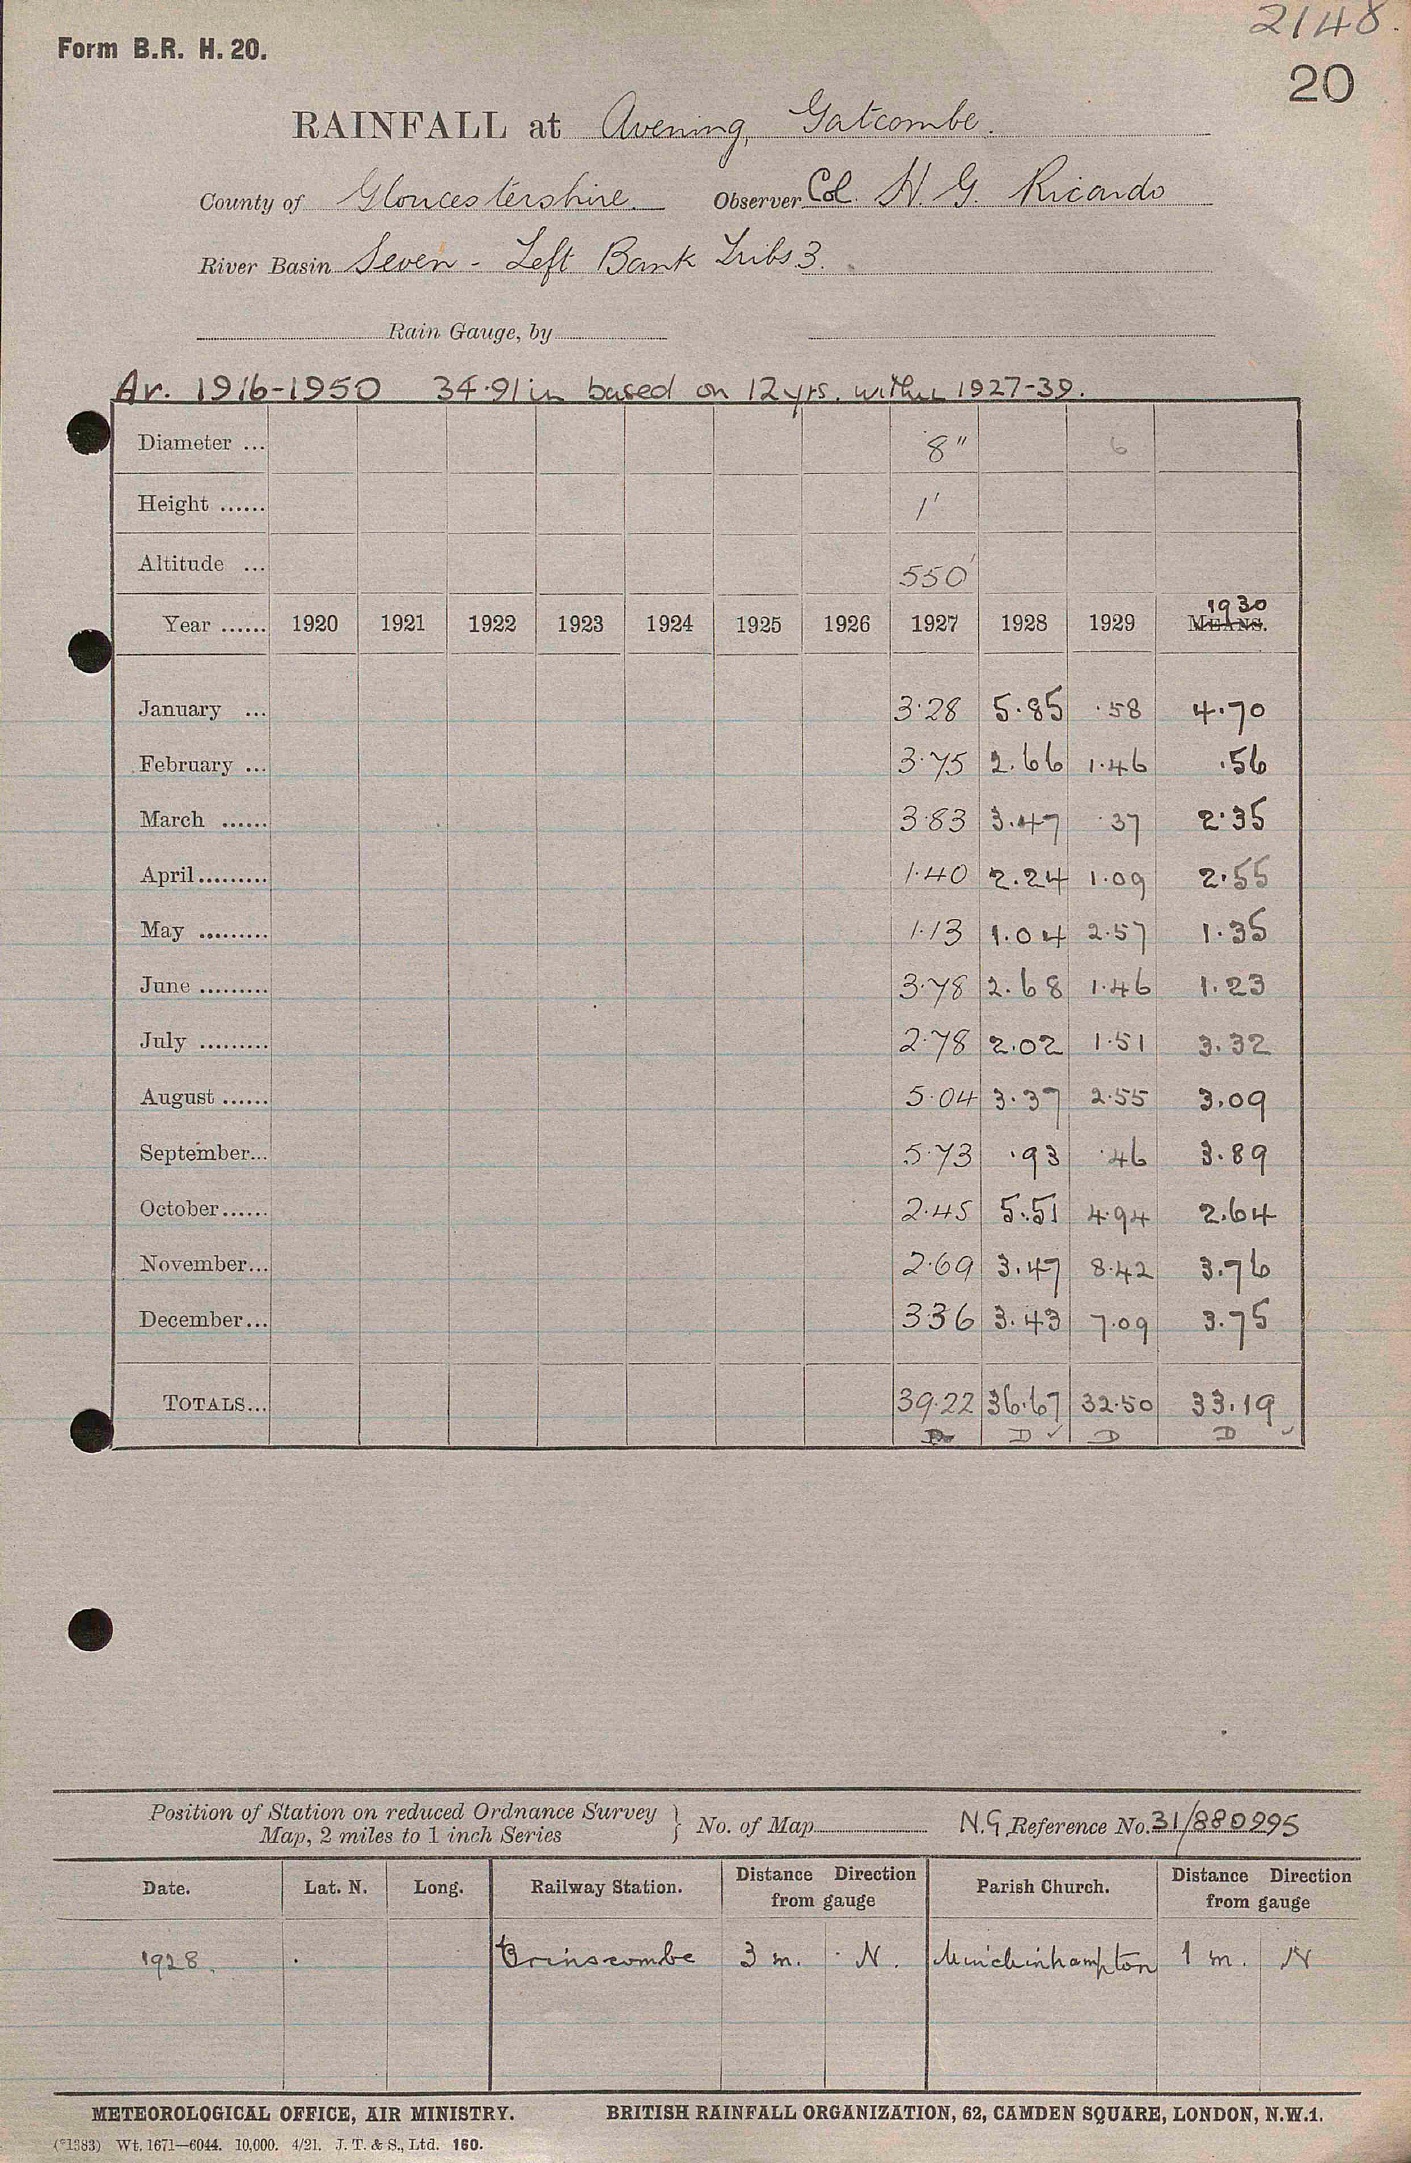 2148.
Form B.R. H. 20.
20
RAINFALL at Avening, Gatcombe.
County of Gloucestershire. Observer Col. H. G. Ricardo
River Basin Seven - Left Bank Tribs 3.
Rain Gauge, by
Av. 1916-1950 34.91 in based on 12 yrs. within 1927-39.
Diameter ... 8" 6
Height ...... 1'
Altitude ... 550'
Year ...... 1920 1921 1922 1923 1924 1925 1926 1927 1928 1929 1930 MEANS.
January ... 3.28 5.85 .58 4.70
February ... 3.75 2.66 1.46 .56
March ...... 3.83 3.47 .37 2.35
April......... 1.40 2.24 1.09 2.55
May ......... 1.13 1.04 2.57 1.35
June ......... 3.78 2.68 1.46 1.23
July ......... 2.78 2.02 1.51 3.32
August ...... 5.04 3.37 2.55 3.09
September... 5.73 .93 .46 3.89
October...... 2.45 5.51 4.94 2.64
November... 2.69 3.47 8.42 3.76
December... 3.36 3.43 7.09 3.75
TOTALS... 39.22 36.67 32.50 33.19
D ✓ D D ✓
Position of Station on reduced Ordnance Survey } No. of Map N.G. Reference No. 31/880995
Map, 2 miles to 1 inch Series
Date. Lat. N. Long. Railway Station. Distance Direction from gauge Parish Church. Distance Direction from gauge
1928. Brinscombe 3 m. N. Minchinhampton 1 m. N
METEOROLOGICAL OFFICE, AIR MINISTRY. BRITISH RAINFALL ORGANIZATION, 62, CAMDEN SQUARE, LONDON, N.W.1.
(*1383) Wt. 1671—6044. 10,000. 4/21. J. T. & S., Ltd. 160.